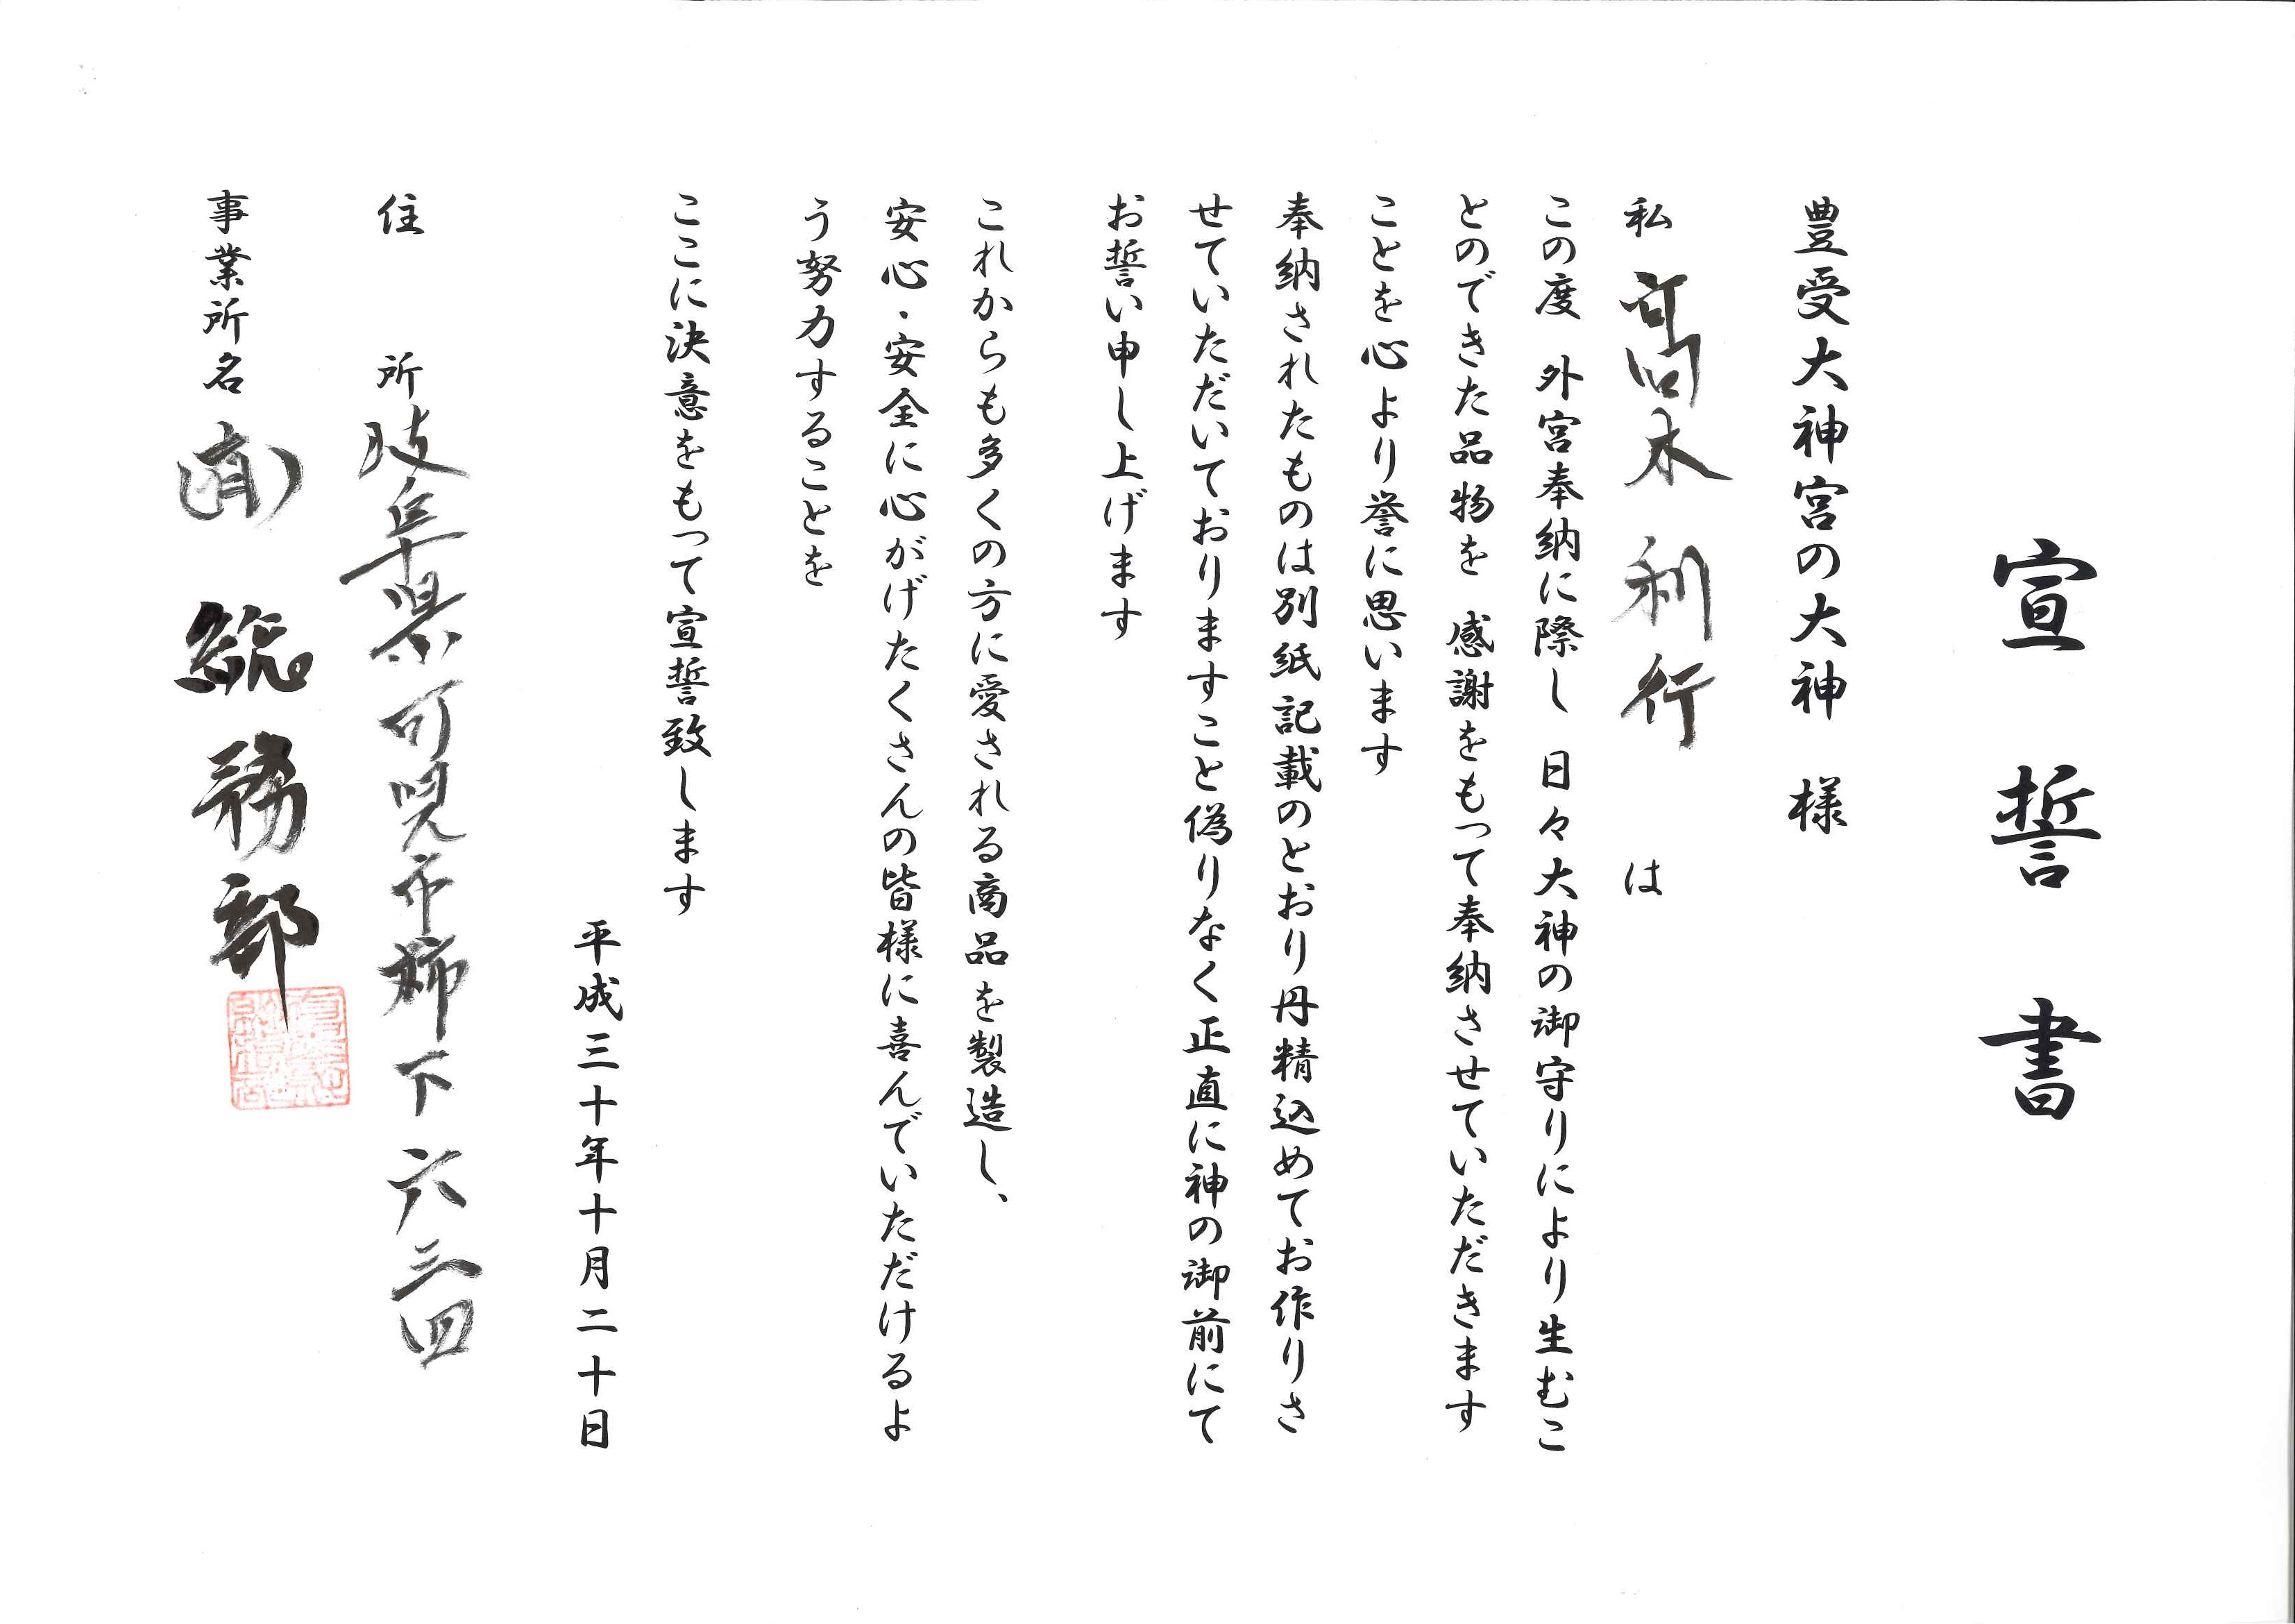 宣誓書
豊受大神宮の大神 様
私 髙木利行 は
この度 外宮奉納に際し 日々大神の御守りにより生むこ
とのできた品物を 感謝をもって奉納させていただきます
ことを心より誉に思います
奉納されたものは別紙記載のとおり丹精込めてお作りさ
せていただいておりますこと偽りなく正直に神の御前にて
お誓い申し上げます
これからも多くの方に愛される商品を製造し、
安心・安全に心がげたくさんの皆様に喜んでいただけるよ
う努力することを
ここに決意をもって宣誓致します
平成三十年十月二十日
住 所 岐阜県可児市柿下六三四
事業所名 (有) 総務部